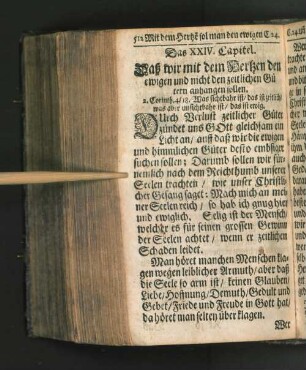 512 Mit dem Hertz sol man den ewigen C 24.
Das XXIV. Capitel.
Daß wir mit dem Hertzen den
ewigen und nicht den zeitlichen Gü-
tern anhangen sollen.
2. Corinth. 4/18. Was sichtbahr ist/ das ist zeitlich/
was aber unsichtbahr ist/ das ist ewig.
DUrch Verlust zeitlicher Güter
zündet uns GOtt gleichsam ein
Licht an/ auff daß wir die ewigen
und himmlichen Güter desto embsiger
suchen sollen: Darumb sollen wir für-
nemlich nach dem Reichthumb unserer
Seelen trachten/ wie unser Christli-
cher Gesang saget: Mach mich an mei-
ner Seelen reich/ so hab ich gnug hier
und ewiglich. Selig ist der Mensch/
welcher es für seinen grossen Gewinn
der Seelen achtet/ wenn er zeitlichen
Schaden leidet.
Man höret manchen Menschen kla-
gen wegen leiblicher Armuth/ aber daß
die Seele so arm ist/ keinen Glauben/
Liebe/ Hoffnung/ Demuth/ Gedult und
Gebet/ Friede und Freude in Gott hat/
da höret man selten über klagen.
Wer